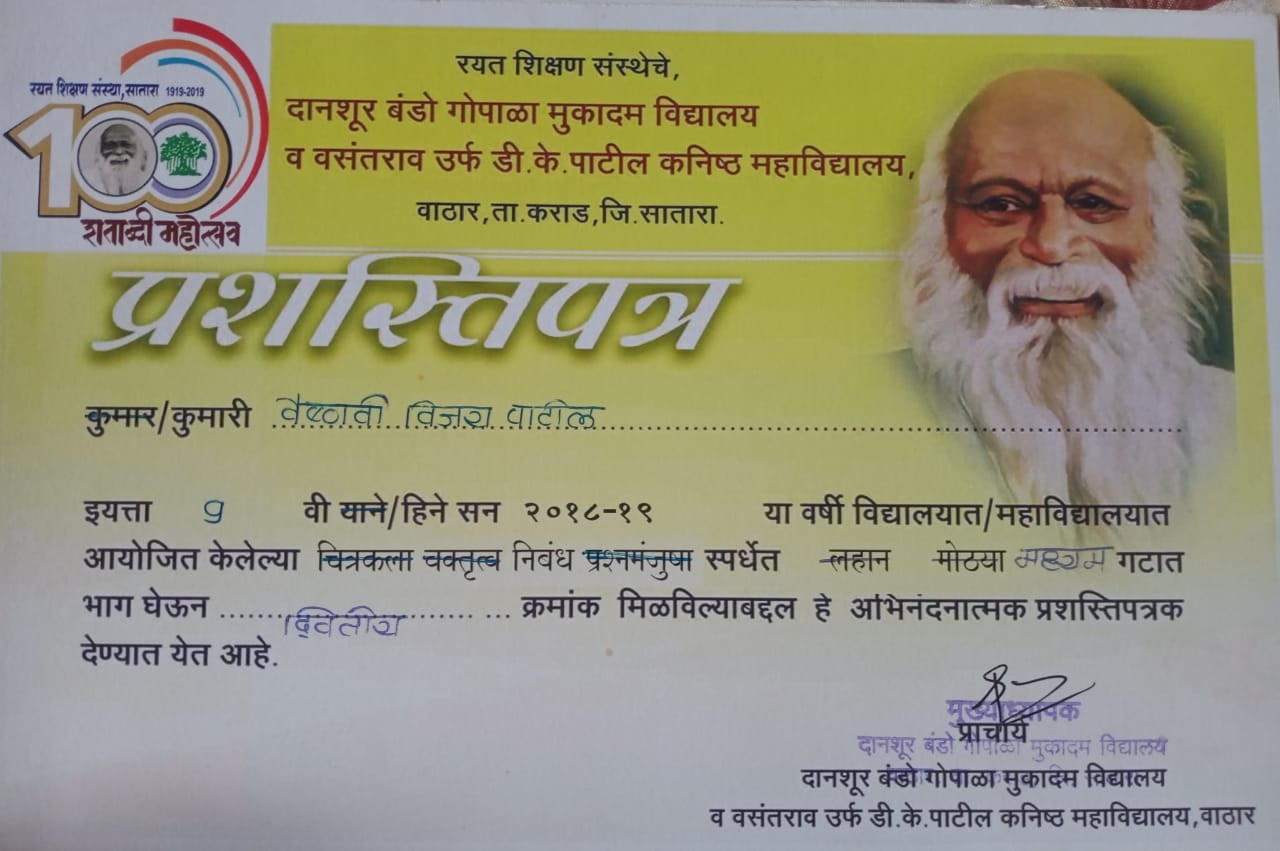 रयत शिक्षण संस्था, सातारा 1919-2019
100
शताब्दी महोत्सव
रयत शिक्षण संस्थेचे,
दानशूर बंडो गोपाळा मुकादम विद्यालय
व वसंतराव उर्फ डी.के.पाटील कनिष्ठ महाविद्यालय,
वाठार,ता.कराड,जि.सातारा.
प्रशस्तिपत्र
कुमार/कुमारी वैष्णवी विजय पाटील
इयत्ता 9 वी याने/हिने सन २०१८-१९ या वर्षी विद्यालयात/महाविद्यालयात
आयोजित केलेल्या चित्रकला वक्तृत्व निबंध प्रश्नमंजुषा स्पर्धेत लहान मोठया मध्यम गटात
भाग घेऊन द्वितीय क्रमांक मिळविल्याबद्दल हे अभिनंदनात्मक प्रशस्तिपत्रक
देण्यात येत आहे.
मुख्याध्यापक
प्राचार्य
दानशूर बंडो गोपाळा मुकादम विद्यालय
दानशूर बंडो गोपाळा मुकादम विद्यालय
व वसंतराव उर्फ डी.के.पाटील कनिष्ठ महाविद्यालय,वाठार